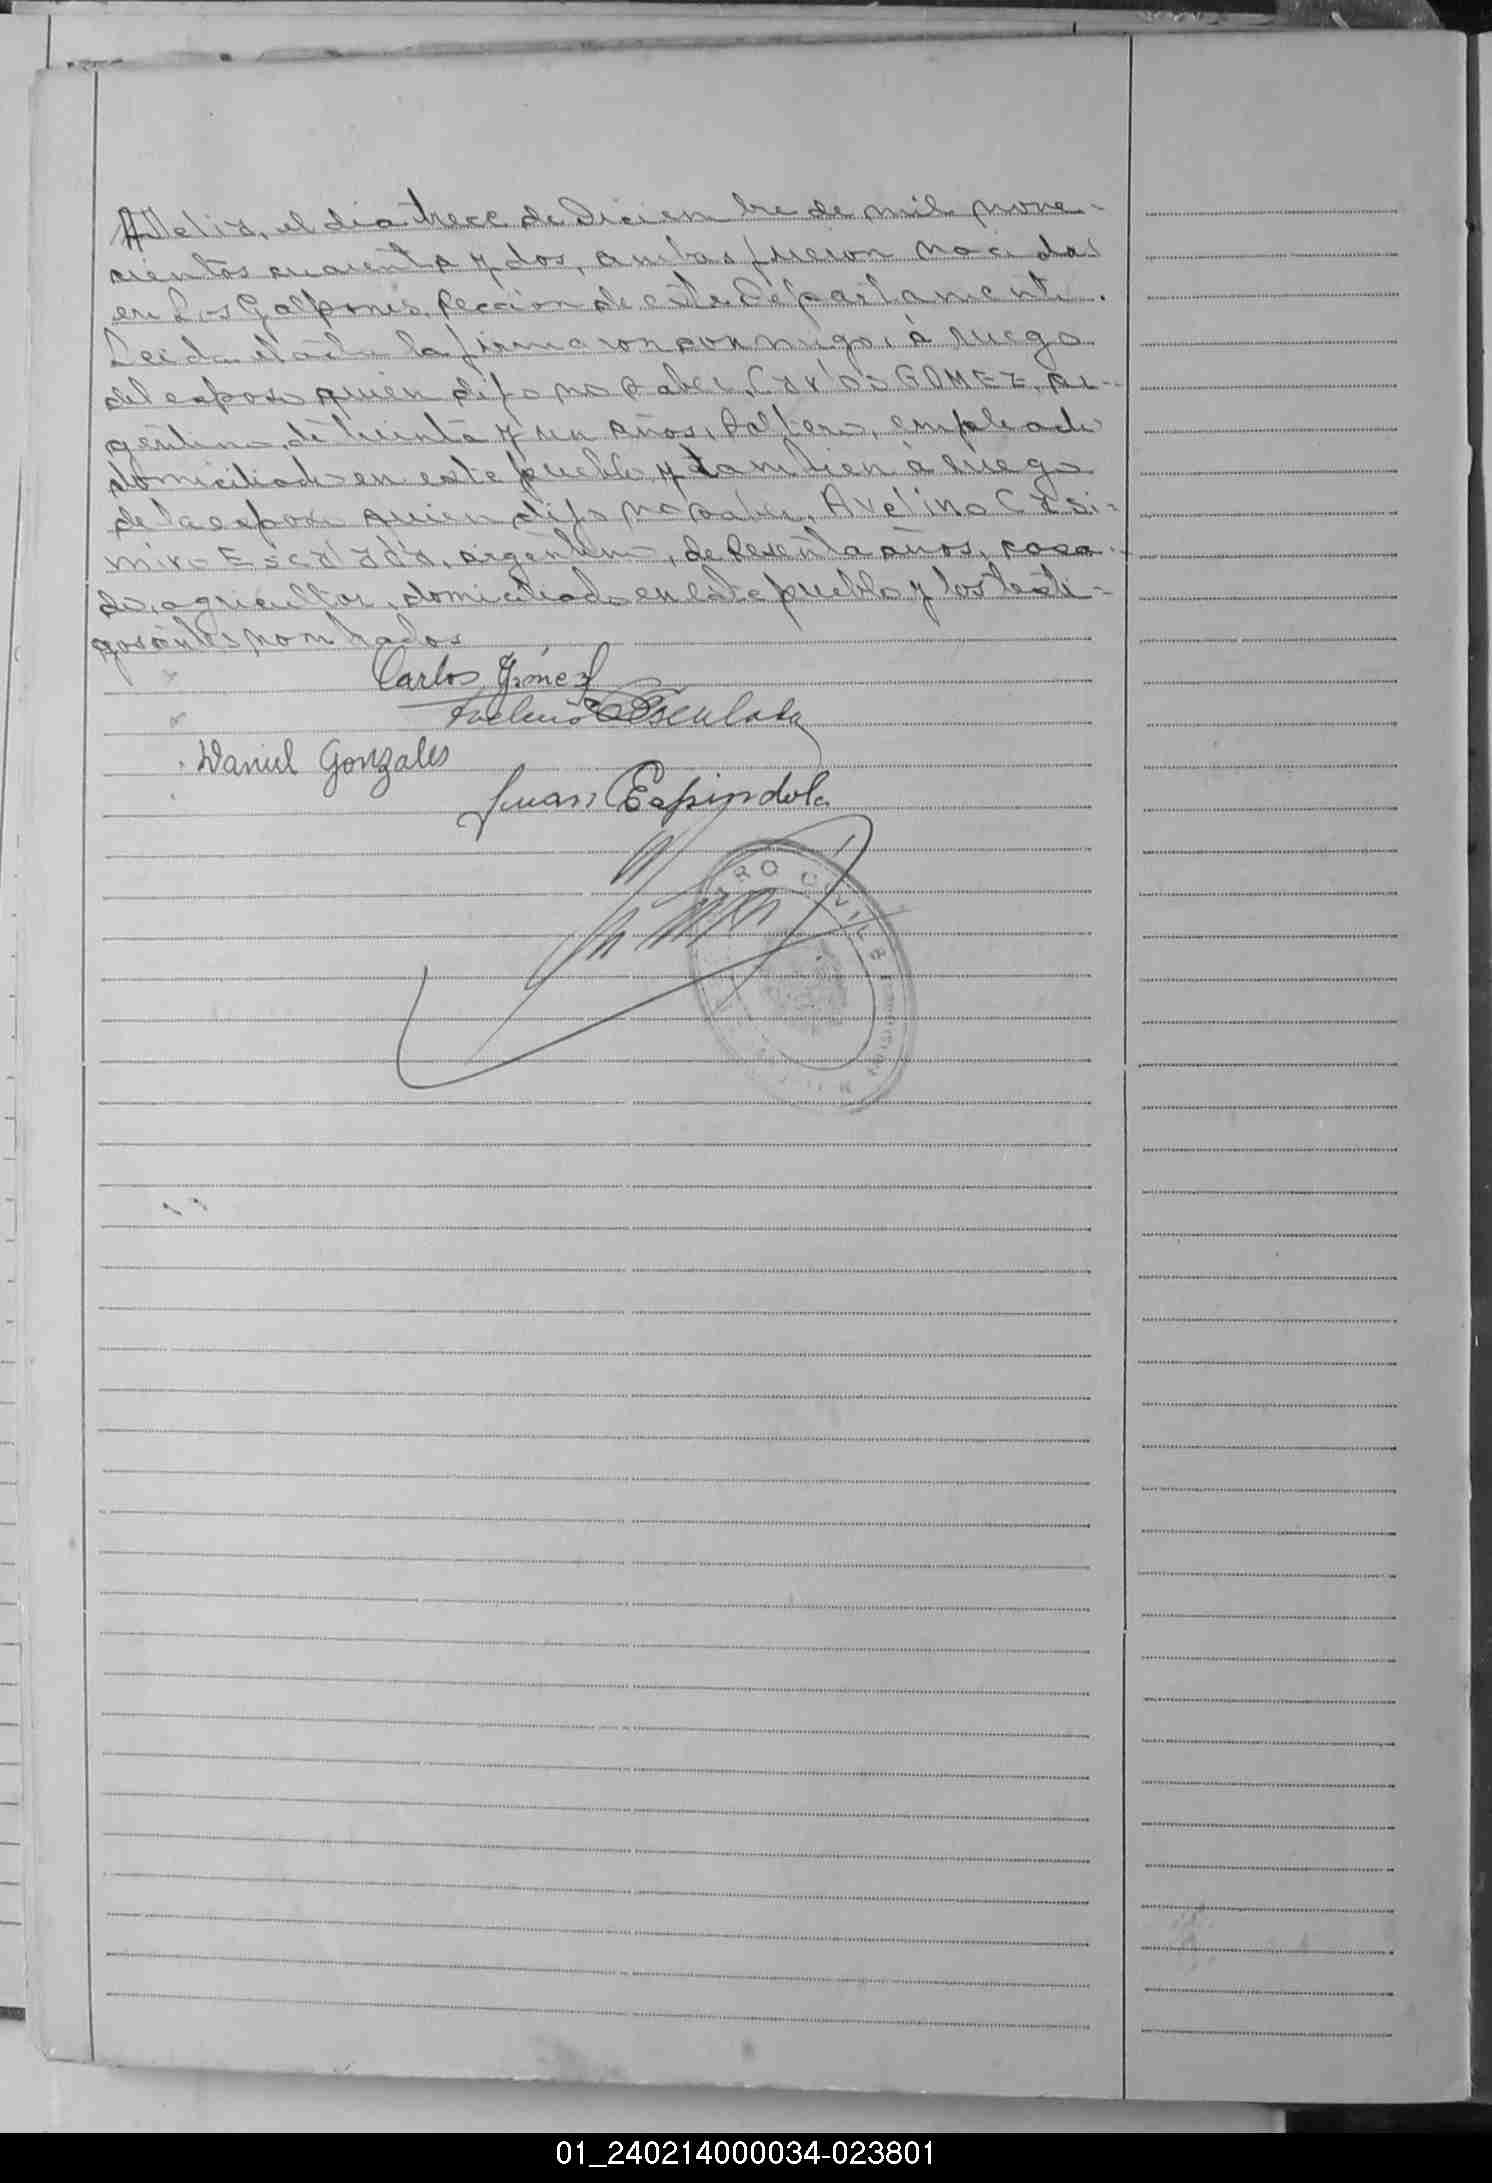 Adelia, el dia trece de Diciembre de mil nove-
cientos cuarenta y dos, ambas fueron nacidas
en Los Galpones, Sección de este Departamento.
Leida el acta la firmaron conmigo, á ruego
del esposo quien dijo no saber, Carlos GOMEZ, ar-
gentino, de treinta y un años, soltero, empleado
domiciliado en este pueblo y tambien á ruego
de la esposa quien dijo no saber, Avelino Casi-
miro Escalada, argentino, de sesenta años, casa-
do, agricultor, domiciliado en este pueblo y los testi-
gos antes nombrados
Carlos Gómez
Avelino C Escalada
Daniel Gonzales
Juan Espindola
RO CIVIL
01_240214000034-023801